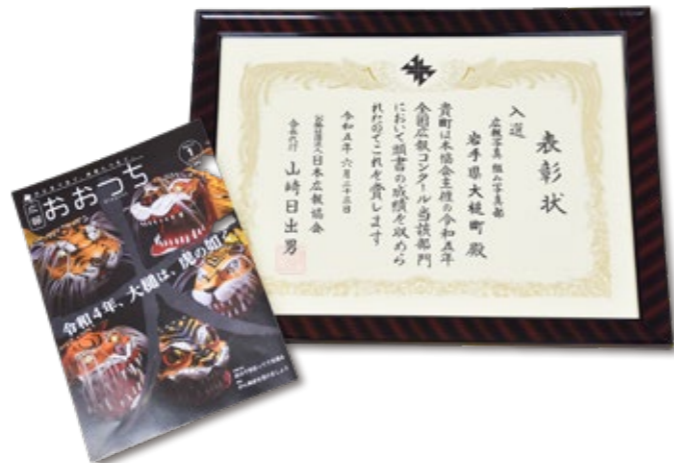 表彰状
入選
広報写真 組み写真部
岩手県大槌町 殿
貴町は本協会主催の令和五年
全国広報コンクール当該部門
において頭書の成績を収めら
れたのでこれを賞します
令和五年 六月二十三日
公益社団法人日本広報協会
会長代行 山﨑日出男
広報
おおつち
1
令和4年、大槌は、虎の如く